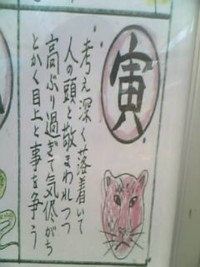 寅
考え深く落着いて
人の頭と敬まわれつつ
高ぶり過ぎて気侭がち
とかく目上と事を争う